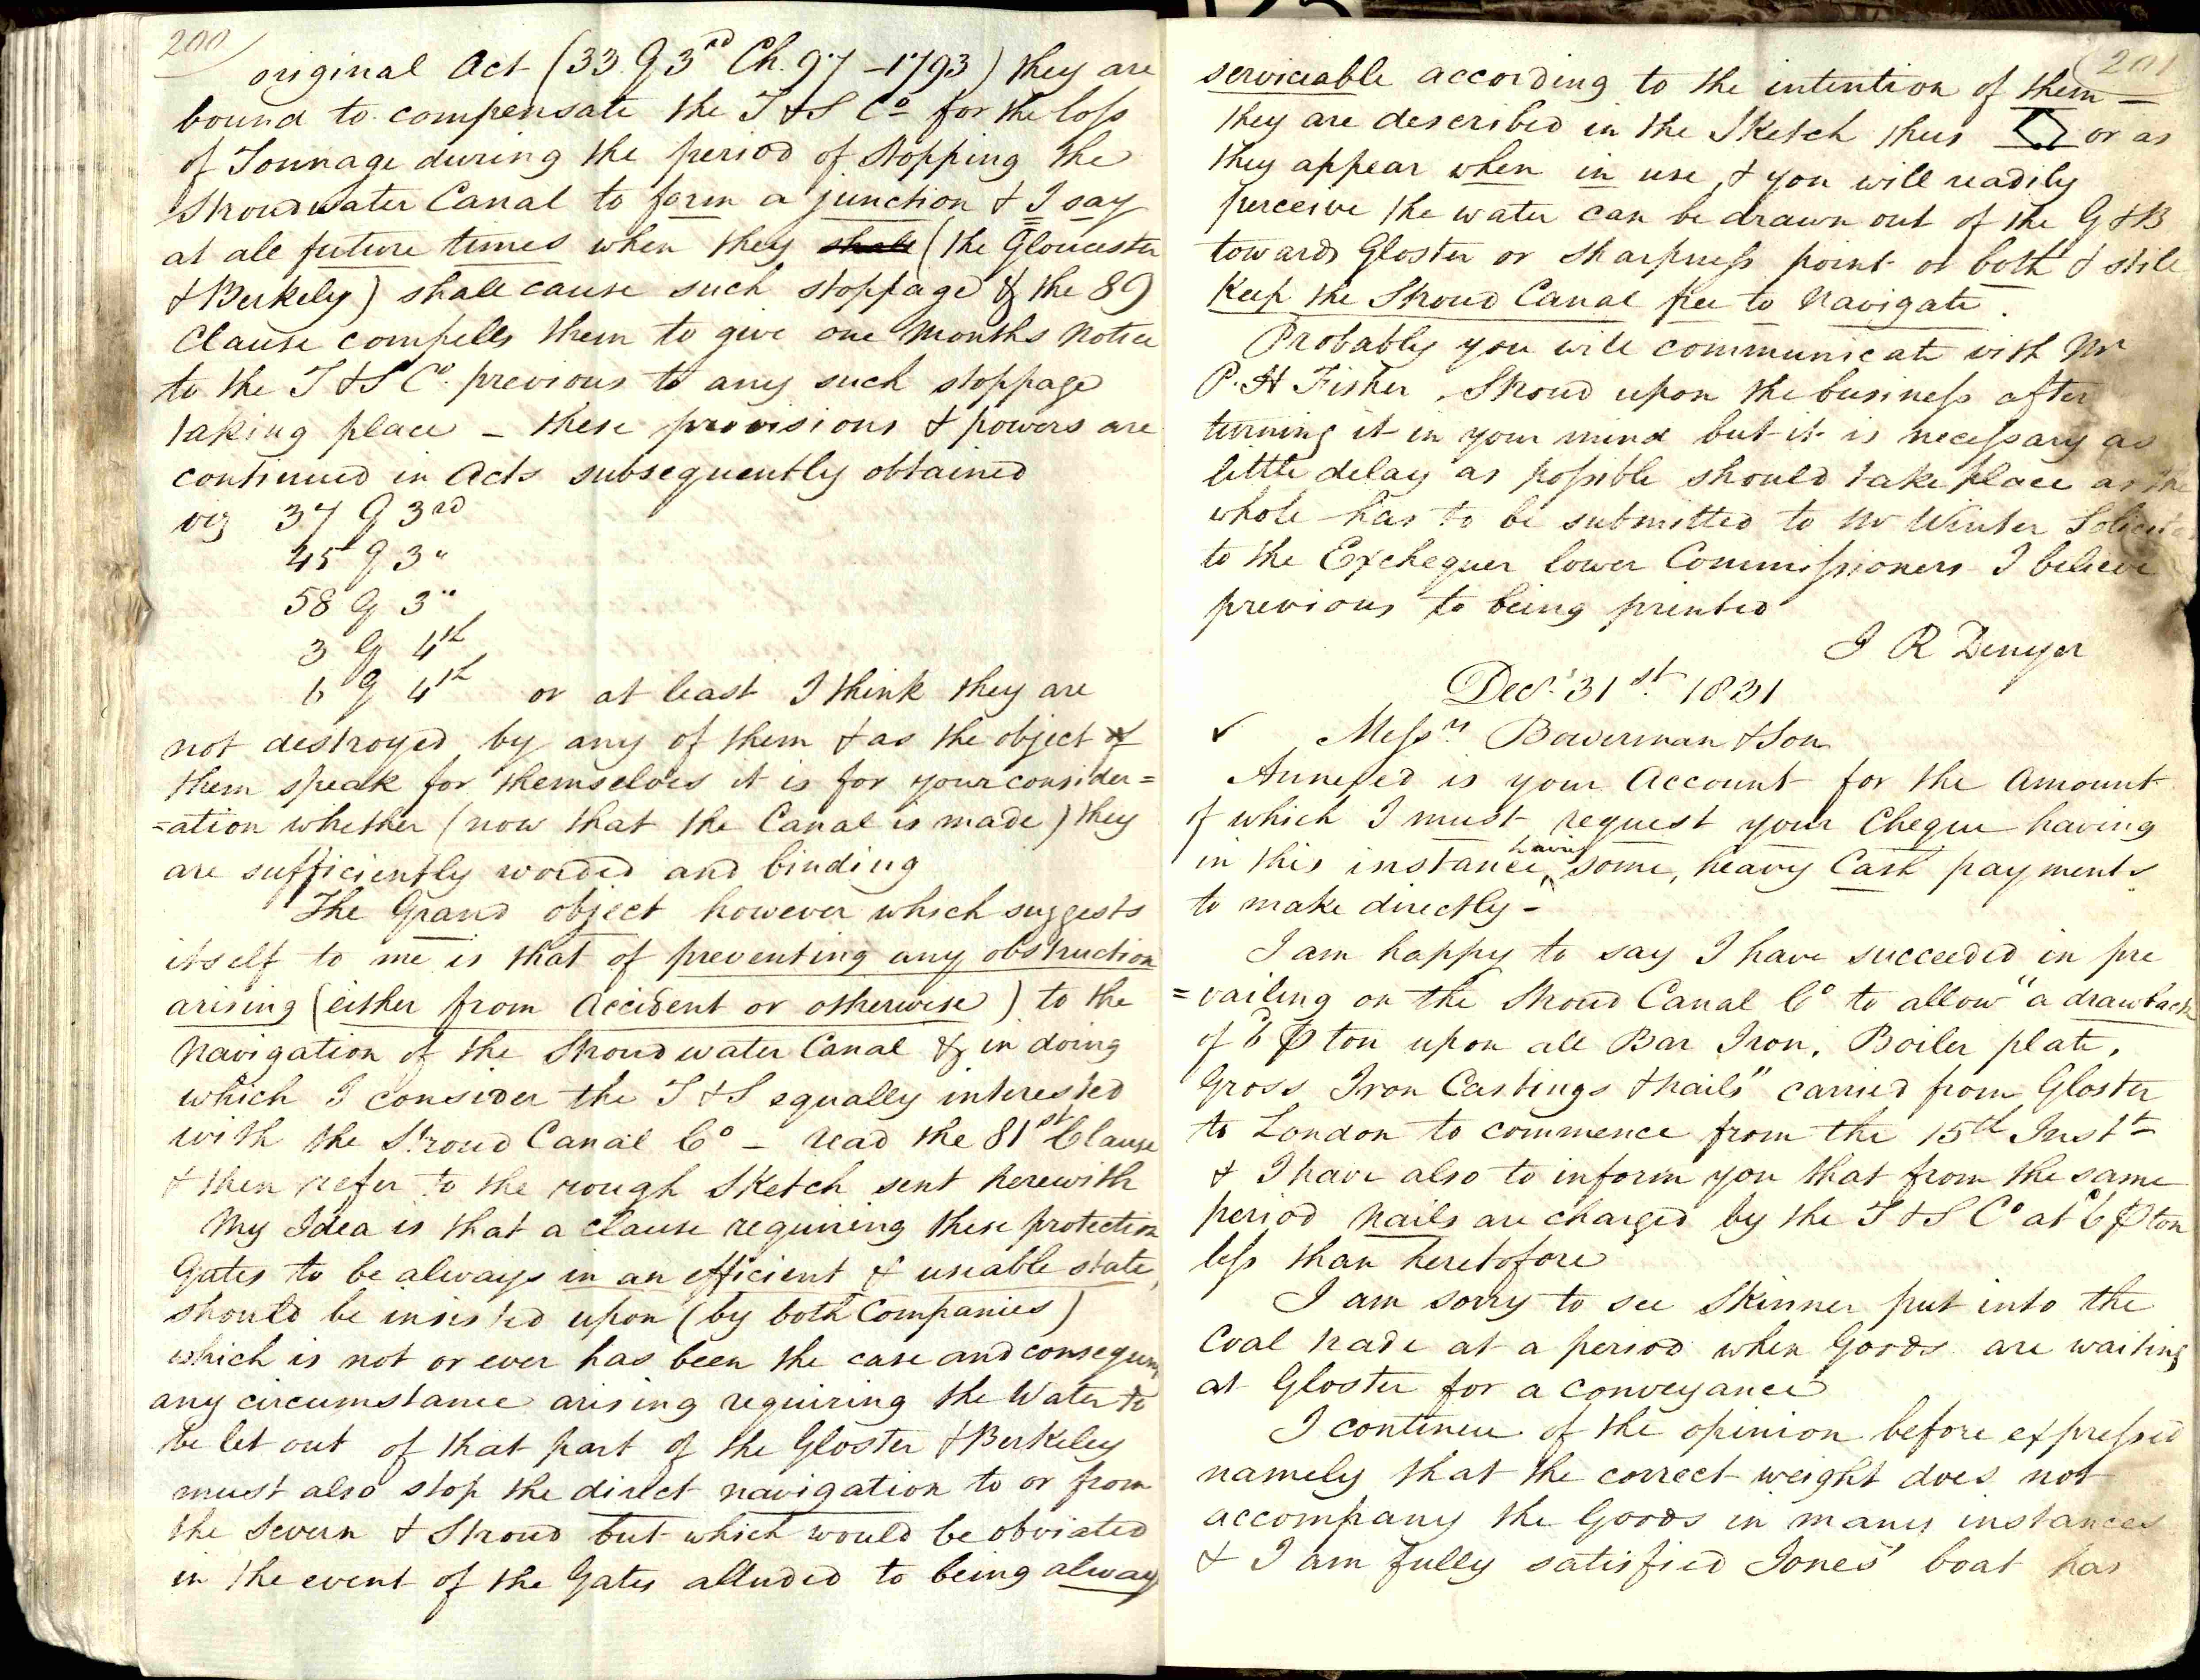 200
original Act (33 G 3rd Ch. 97 - 1793) they are
bound to compensate the T & S Co for the loss
of Tonnage during the period of stopping the
Stroudwater Canal to form a junction & I say
at all future times when they shall (the Gloucester
& Berkely) shall cause such stoppage & the 89
Clause compells them to give one Months Notice
to the T & S Co. previous to any such stoppage
taking place - these provisions & powers are
continued in Acts subsequently obtained
viz 37 G 3rd
45 G 3 "
58 G 3 "
3 G 4th
6 G 4th or at least I think they are
not destroyed by any of them & as the object of
them speak for themselves it is for your consider=
=ation whether (now that the Canal is made) they
are sufficiently worded and binding
The Grand object however which suggests
itself to me is that of preventing any obstruction
arising (either from Accident or otherwise) to the
Navigation of the Stroudwater Canal & in doing
which I consider the T & S equally interested
with the Stroud Canal Co - read the 81st Clause
& then refer to the rough Sketch sent herewith
My Idea is that a clause requiring these protection
Gates to be always in an efficient & useable state,
should be insisted upon (by both Companies)
which is not or ever has been the case and consequen
any circumstance arising requiring the Water to
be let out of that part of the Gloster & Berkeley
must also stop the direct navigation to or from
the Severn & Stroud but which would be obviated
in the event of the Gates alluded to being always
201
serviceable according to the intention of them -
they are described in the Sketch thus or as
they appear when in use, & you will readily
perceive the water can be drawn out of the G & B
towards Gloster or Sharpness point or both & still
Keep the Stroud Canal free to Navigate.
Probably you will communicate with Mr
P. H Fisher, Stroud upon the business after
turning it in your mind but it is necessary as
little delay as possible should take place as the
whole has to be submitted to Mr Winter Solicitor
to the Exchequer lower Commissioners I believe
previous to being printed
J R Denyer
Decr. 31st. 1831
✓ Messrs Bowerman & Son
Annexed is your Account for the Amount
of which I must request your Cheque having
in this instance having some, heavy Cash payments
to make directly -
I am happy to say I have succeeded in pre
=vailing on the Stroud Canal Co to allow "a drawback
of 6d ₱ ton upon all Bar Iron, Boiler plate,
Gross Iron Castings & nails" carried from Gloster
to London to commence from the 15th Instt -
& I have also to inform you that from the same
period Nails are charged by the T & S Co at 6d ₱ ton
less than heretofore
I am sorry to see Skinner put into the
Coal trade at a period when Goods are waiting
at Gloster for a conveyance
I continue of the opinion before expressed
namely that the correct weight does not
accompany the Goods in many instances
& I am fully satisfied Jones' boat has